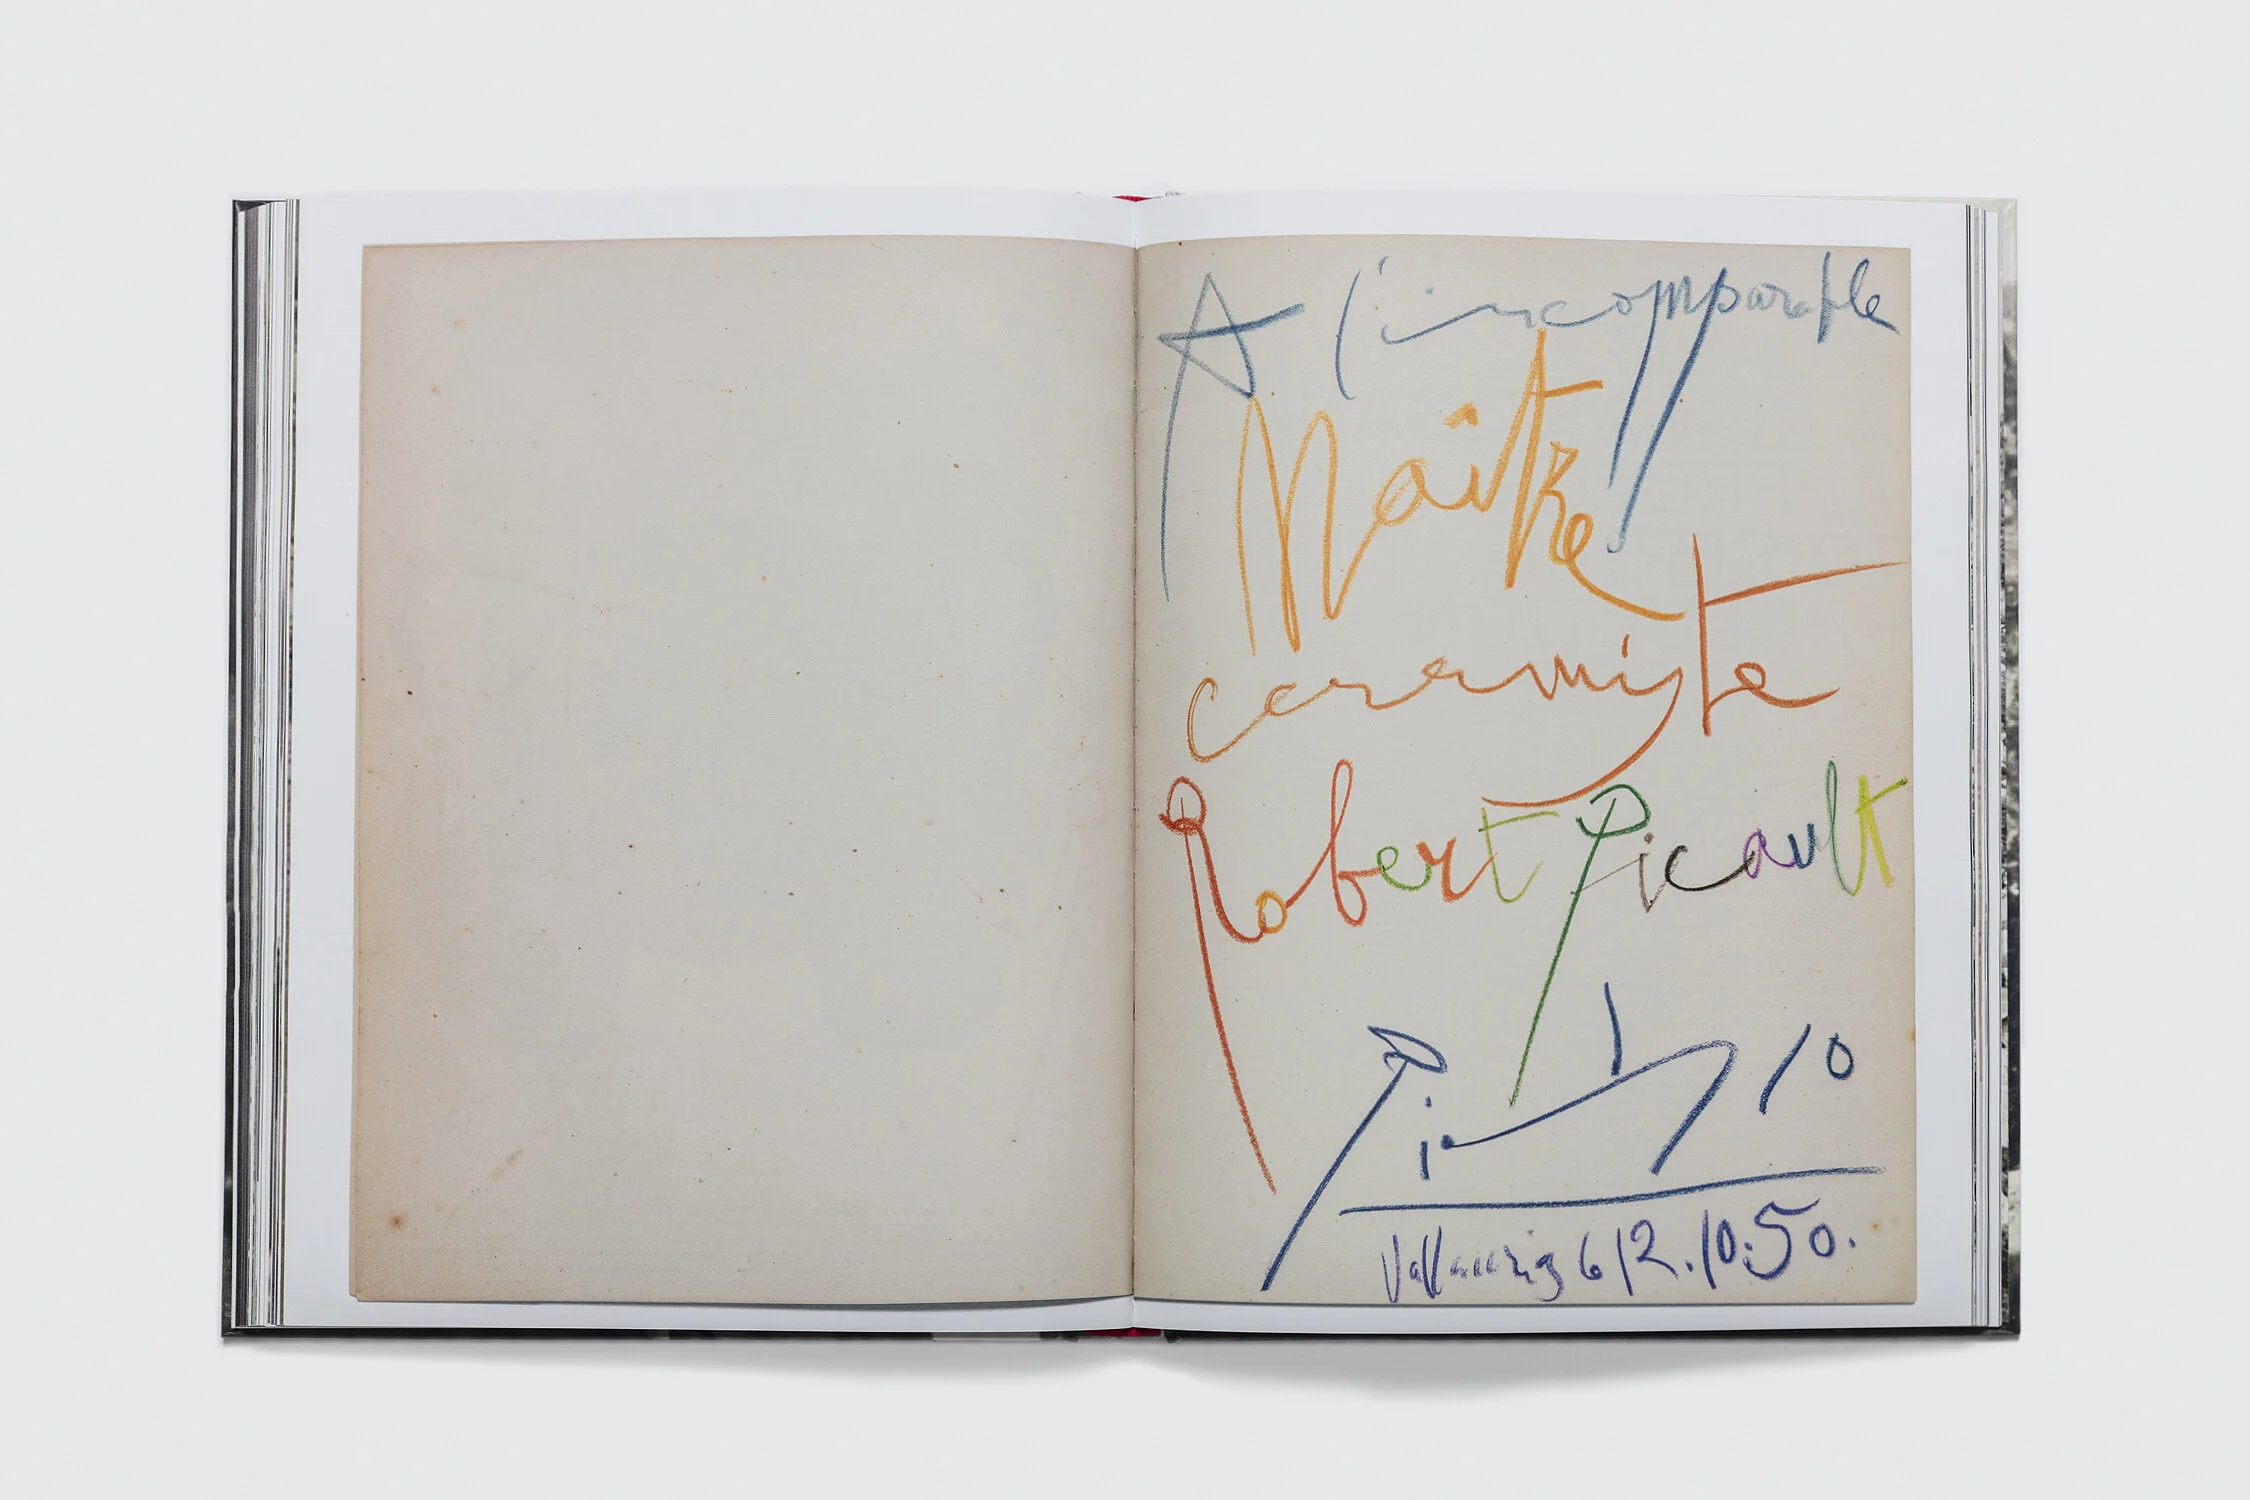 A l'incomparable
Maître
ceramiste
Robert Picault
Picasso
Vallauris 6 12.10.50.